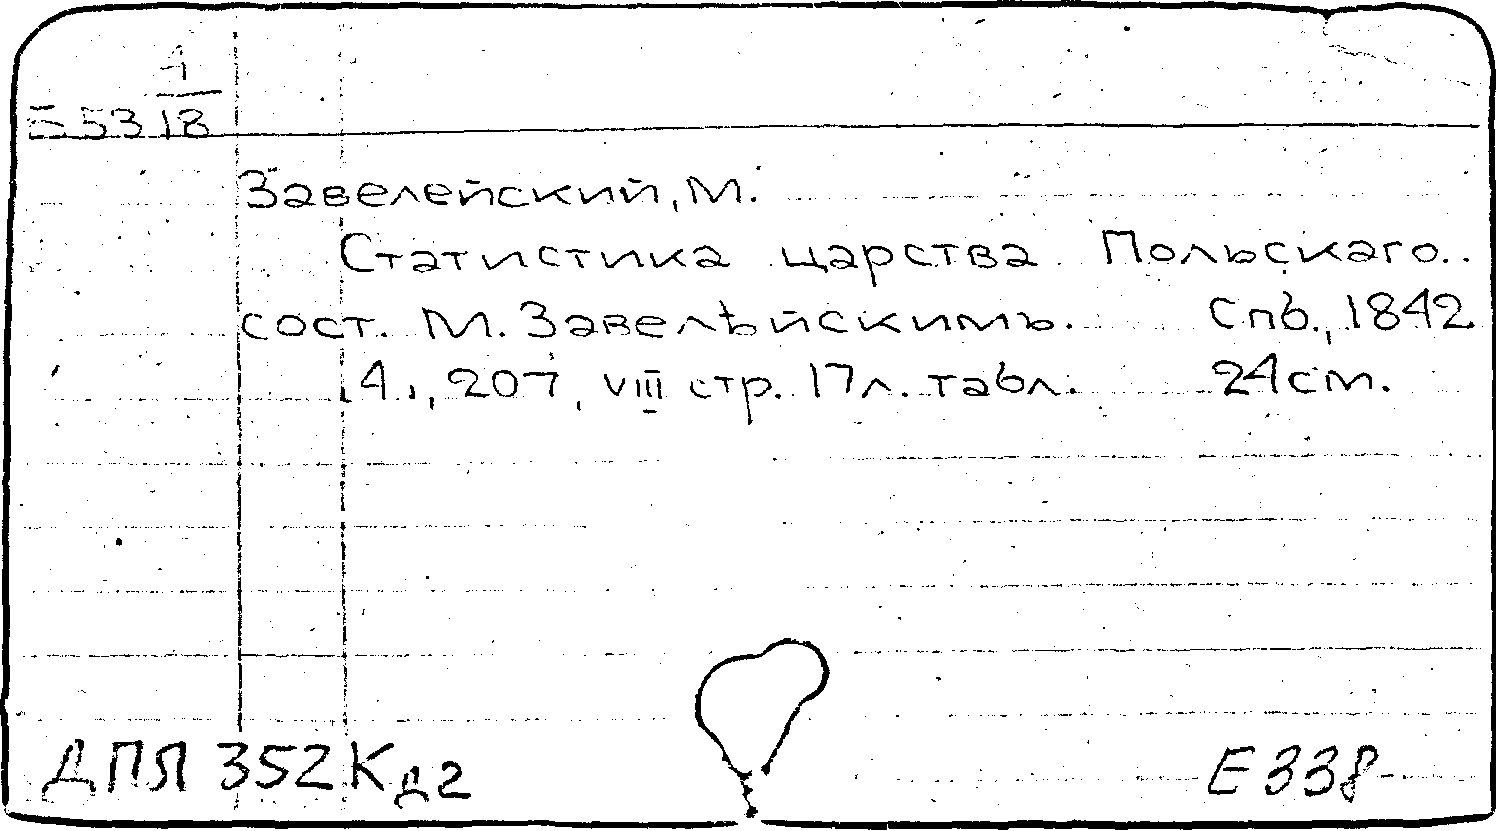 1
Б 53 18
Завелейский, М.
Статистика царства Польскаго..
сост. М. Завелѣйскимъ. Спб., 1842
4, 207, VIII стр. 17 л. табл. 24 см.
ДПЯ 352 Кд2
Е 338